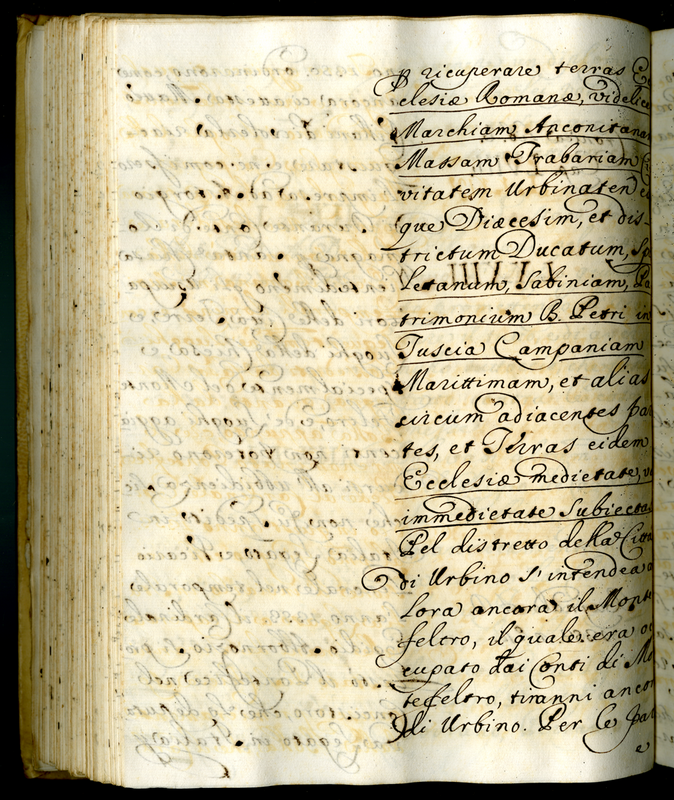 p ricuperare terras Ec
clesiæ Romanæ, videlice
Marchiam Anconitana
Massam Trabariam Ci
vitatem Urbinaten e
que Diæcesim, et dis-
trictum Ducatum, Sp
letanum, Sabiniam, Pa
trimonium B. Petri in
Tuscia Campaniam
Marittimam, et alias
circum adiacentes par
tes, et Terras eidem
Ecclesiæ medietate, v
immedietate Subiecta
Pel distretto della Citta
di Urbino s'intendea a
lora ancora il Monte
feltro, il quale era oc
cupato dai Conti di Mo
tefeltro, tiranni ancor
di Urbino. Per le par
e